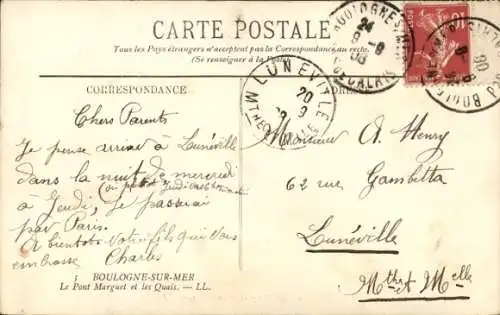 CARTE POSTALE
Tous les Pays étrangers n'acceptent pas la Correspondance au recto.
(Se renseigner à la Poste)
BOULOGNE
PAS DE CALAIS
24
9-8
08
POSTES
BOULO
CORRESPONDANCE
LUNEVILLE
MTHE
20
9
Chers Parents
Je pense arriver à Lunéville
dans la nuit de mercredi
à Jeudi, Je passerai
par Paris.
A bientôt votre fils qui vous
embrasse Charles
Monsieur A. Henry
62 rue Gambetta
Lunéville
Mthe & Mlle
BOULOGNE-SUR-MER
Le Pont Marguet et les Quais. — LL.